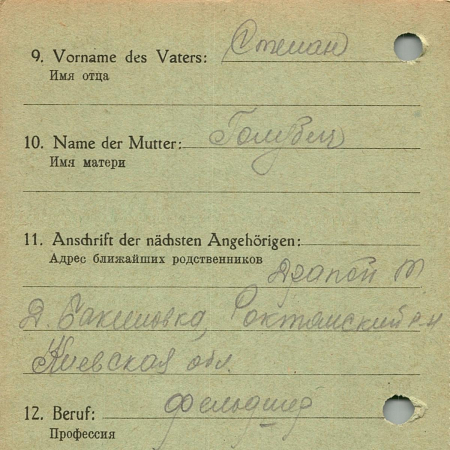 9. Vorname des Vaters: Степан
Имя отца
10. Name der Mutter: Голубец
Имя матери
11. Anschrift der nächsten Angehörigen:
Адрес ближайших родственников
Д. Бакшовка, р-н
Киевская обл.
12. Beruf: Фельдшер
Профессия